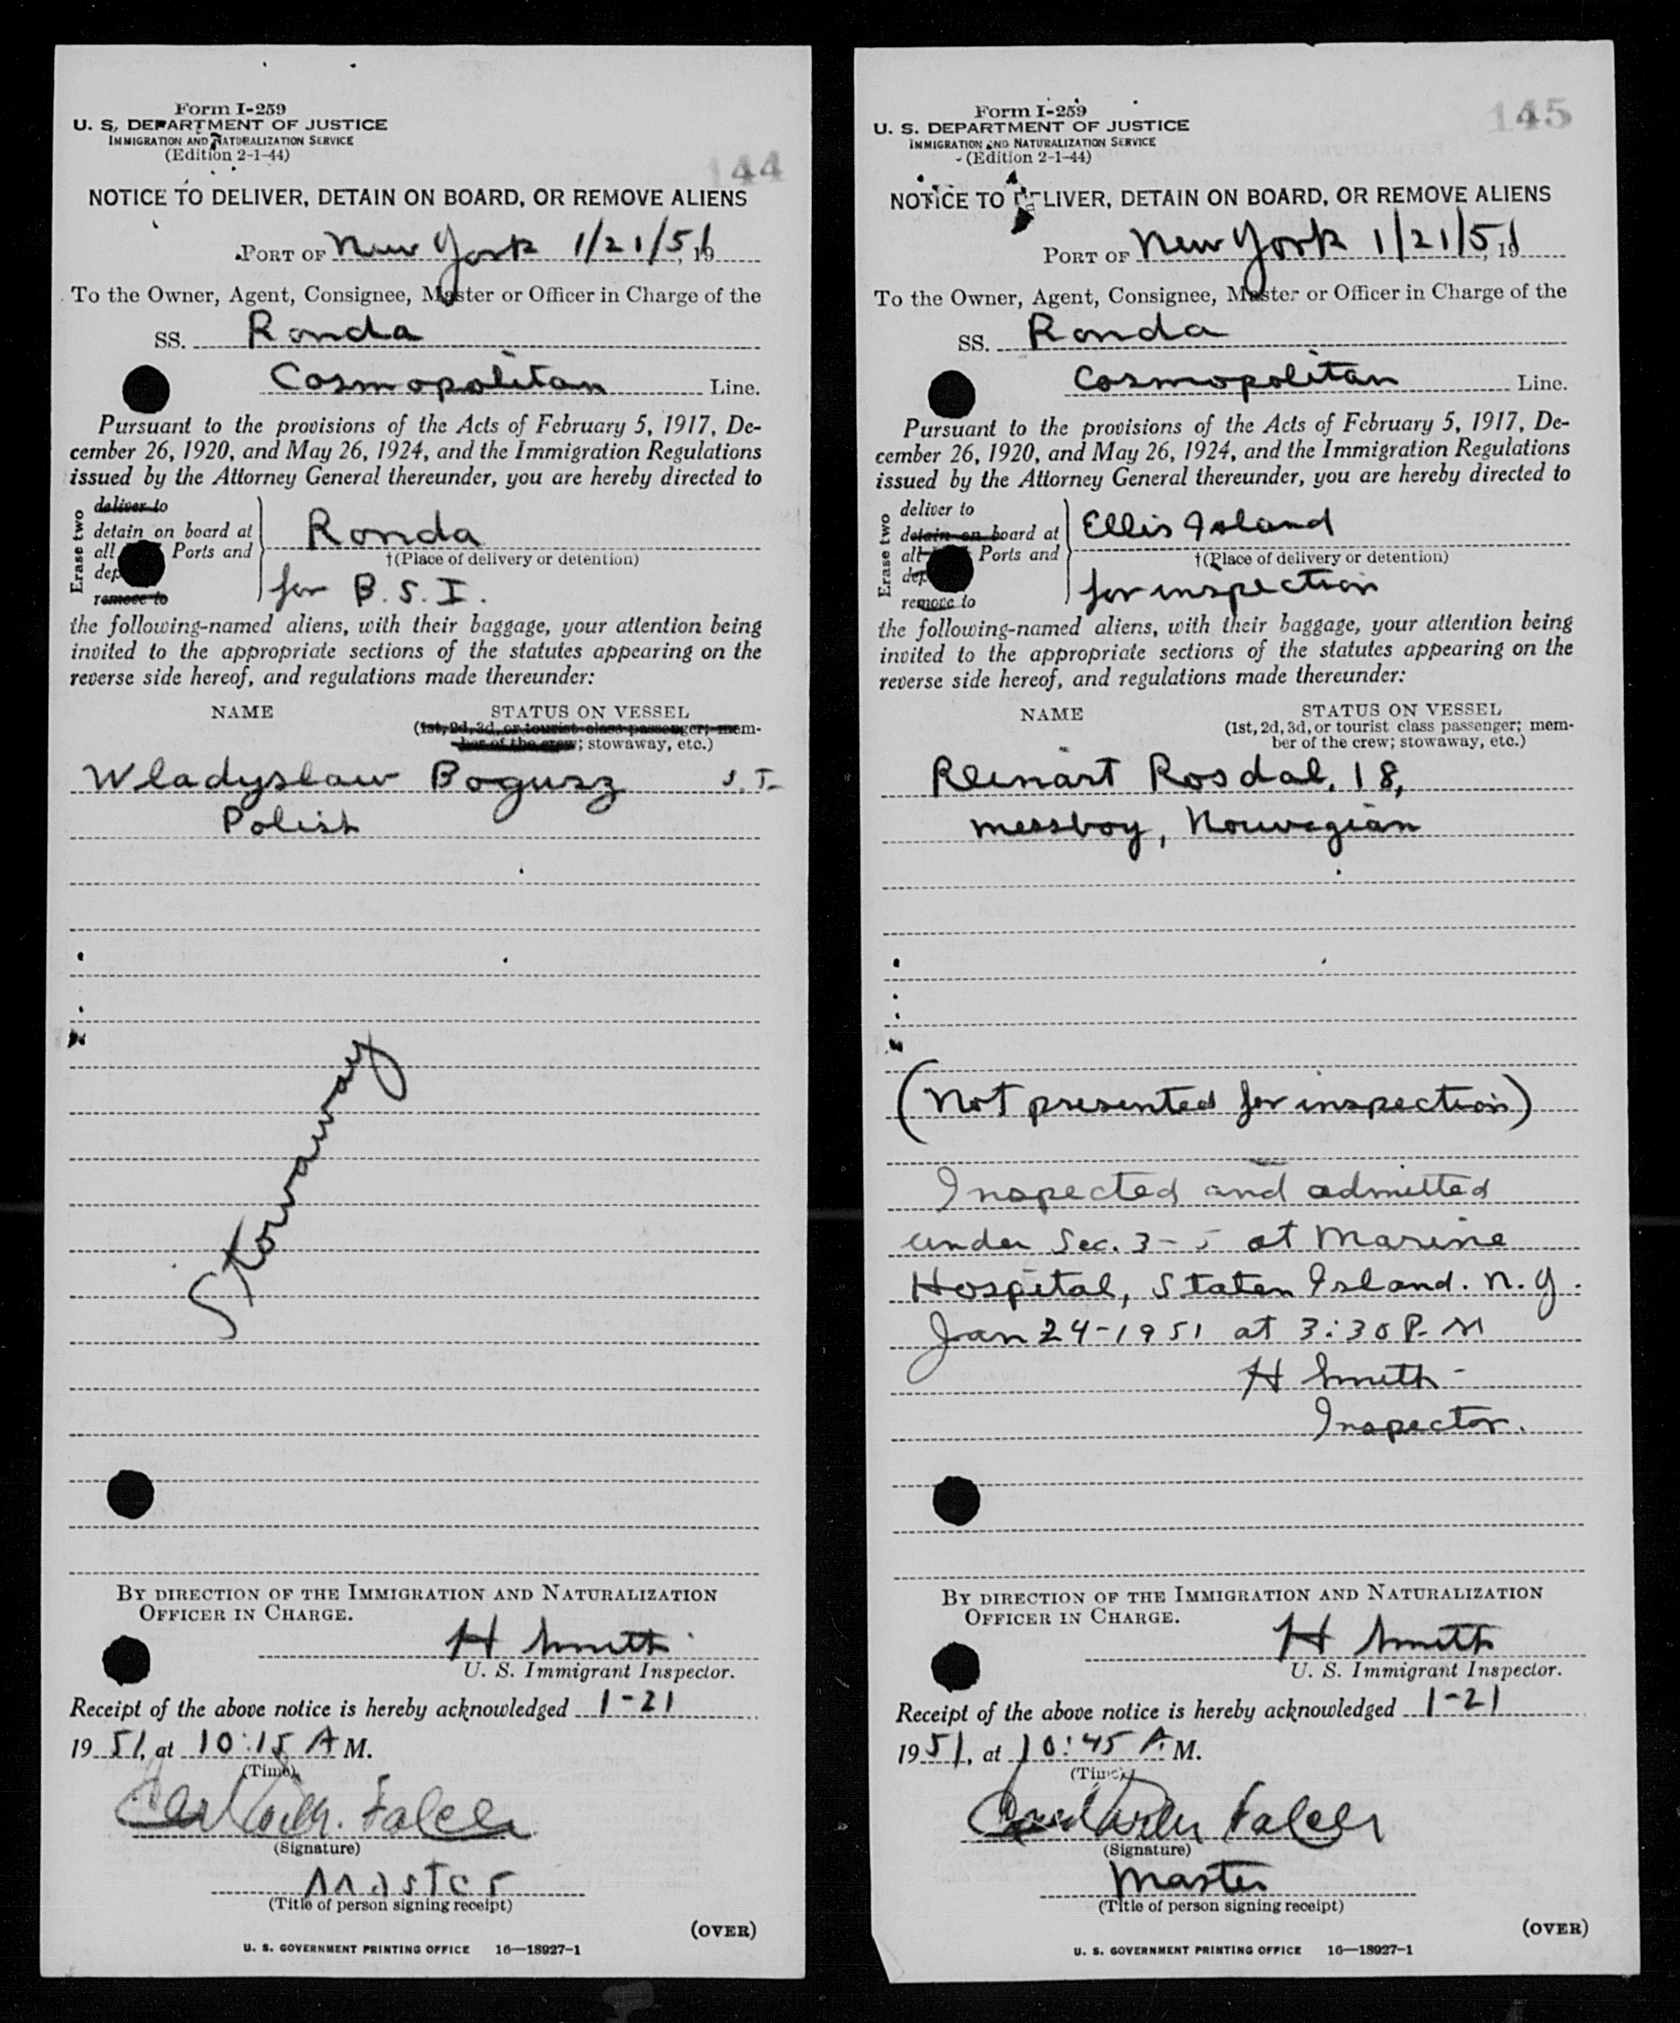 Form I-259
U. S. DEPARTMENT OF JUSTICE
IMMIGRATION AND NATURALIZATION SERVICE
(Edition 2-1-44)
144
NOTICE TO DELIVER, DETAIN ON BOARD, OR REMOVE ALIENS
PORT OF New York 1/21/51, 19
To the Owner, Agent, Consignee, Master or Officer in Charge of the
SS. Ronda
Cosmopolitan Line.
Pursuant to the provisions of the Acts of February 5, 1917, De-
cember 26, 1920, and May 26, 1924, and the Immigration Regulations
issued by the Attorney General thereunder, you are hereby directed to
Erase two
deliver to
detain on board at
all Ports and
dep
remove to
Ronda
†(Place of delivery or detention)
for B. S. I.
the following-named aliens, with their baggage, your attention being
invited to the appropriate sections of the statutes appearing on the
reverse side hereof, and regulations made thereunder:
NAME STATUS ON VESSEL
(1st, 2d, 3d, or tourist class passenger; mem-
ber of the crew; stowaway, etc.)
Wladyslaw Bogusz
Polish
Stowaway
BY DIRECTION OF THE IMMIGRATION AND NATURALIZATION
OFFICER IN CHARGE.
H Smith
U. S. Immigrant Inspector.
Receipt of the above notice is hereby acknowledged 1-21
19 51, at 10:15 A M.
(Time)
(Signature)
Master
(Title of person signing receipt)
(OVER)
U. S. GOVERNMENT PRINTING OFFICE 16—18927-1
Form I-259
U. S. DEPARTMENT OF JUSTICE
IMMIGRATION AND NATURALIZATION SERVICE
(Edition 2-1-44)
145
NOTICE TO DELIVER, DETAIN ON BOARD, OR REMOVE ALIENS
PORT OF New York 1/21/51, 19
To the Owner, Agent, Consignee, Master or Officer in Charge of the
SS. Ronda
Cosmopolitan Line.
Pursuant to the provisions of the Acts of February 5, 1917, De-
cember 26, 1920, and May 26, 1924, and the Immigration Regulations
issued by the Attorney General thereunder, you are hereby directed to
Erase two
deliver to
detain on board at
all Ports and
dep
remove to
Ellis Island
†(Place of delivery or detention)
for inspection
the following-named aliens, with their baggage, your attention being
invited to the appropriate sections of the statutes appearing on the
reverse side hereof, and regulations made thereunder:
NAME STATUS ON VESSEL
(1st, 2d, 3d, or tourist class passenger; mem-
ber of the crew; stowaway, etc.)
Reinart Rosdal, 18,
messboy, Norwegian
(Not presented for inspection)
Inspected and admitted
under Sec. 3-5 at Marine
Hospital, Staten Island. N.Y.
Jan 24-1951 at 3:30 P.M
H Smith
Inspector.
BY DIRECTION OF THE IMMIGRATION AND NATURALIZATION
OFFICER IN CHARGE.
H Smith
U. S. Immigrant Inspector.
Receipt of the above notice is hereby acknowledged 1-21
19 51, at 10:45 A. M.
(Time)
(Signature)
Master
(Title of person signing receipt)
(OVER)
U. S. GOVERNMENT PRINTING OFFICE 16—18927-1